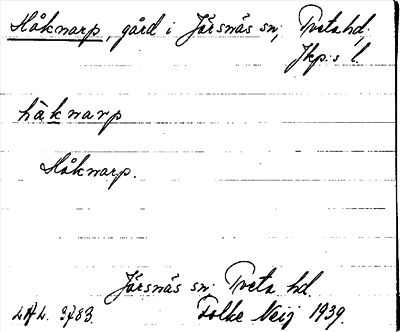 Håknarp, gård i Järsnäs sn, Tveta hd.
Jkp:s l.
håknarp
Håknarp.
Järsnäs sn. Tveta hd.
Folke Neij 1939.